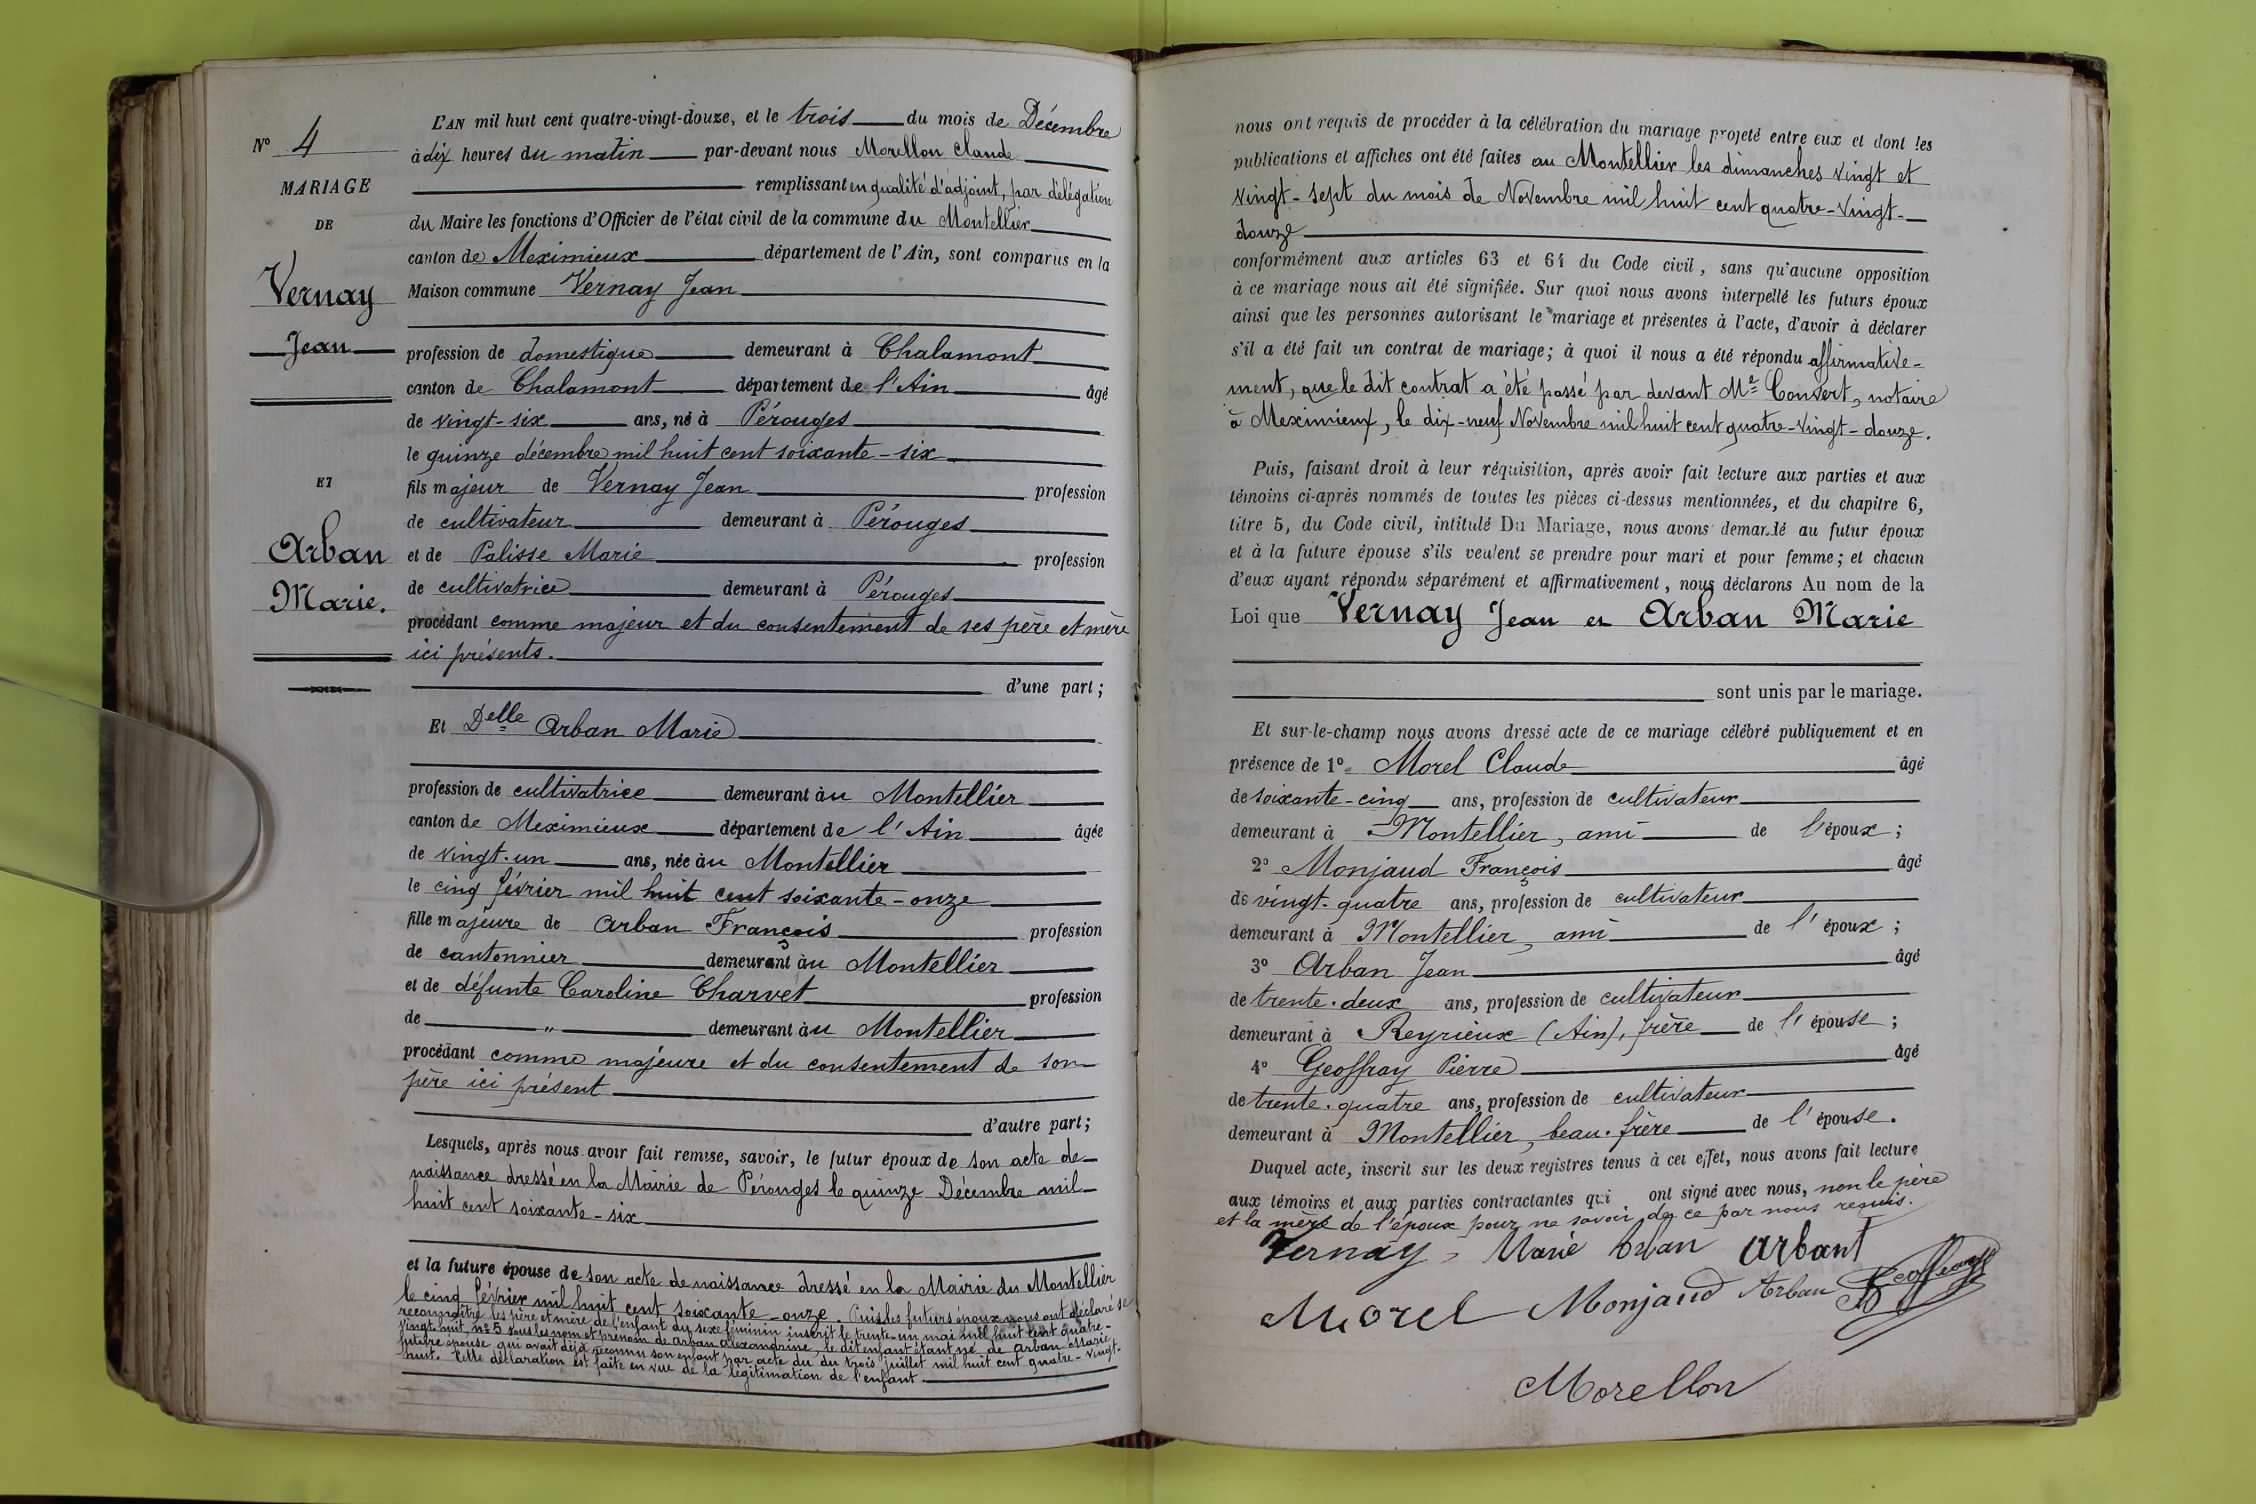 N° 4
MARIAGE
DE
Vernay
Jean
ET
Arban
Marie.
L'AN mil huit cent quatre-vingt-douze, et le trois du mois de Décembre
à dix heures du matin par-devant nous Morellon Claude
remplissant en qualité d'adjoint, par délégation
du Maire les fonctions d'Officier de l'état civil de la commune du Montellier
canton de Meximieux département de l'Ain, sont comparus en la
Maison commune Vernay Jean
profession de domestique demeurant à Chalamont
canton de Chalamont département de l'Ain âgé
de vingt-six ans, né à Pérouges
le quinze décembre mil huit cent soixante-six
fils majeur de Vernay Jean profession
de cultivateur demeurant à Pérouges
et de Palisse Marie profession
de cultivatrice demeurant à Pérouges
procédant comme majeur et du consentement de ses père et mère
ici présents.
d'une part;
Et Delle Arban Marie
profession de cultivatrice demeurant au Montellier
canton de Meximieux département de l'Ain âgée
de vingt-un ans, née au Montellier
le cinq février mil huit cent soixante-onze
fille majeure de Arban François profession
de cantonnier demeurant au Montellier
et de défunte Caroline Charvet profession
de " demeurant au Montellier
procédant comme majeure et du consentement de son
père ici présent
d'autre part;
Lesquels, après nous avoir fait remise, savoir, le futur époux de son acte de
naissance dressé en la Mairie de Pérouges le quinze Décembre mil
huit cent soixante-six
et la future épouse de son acte de naissance dressé en la Mairie du Montellier
le cinq février mil huit cent soixante-onze. Puis les futurs époux nous ont déclaré se
reconnaître les père et mère de l'enfant du sexe féminin inscrit le trente-un mai mil huit cent quatre-
vingt-huit, n° 5 sous les nom et prénom de Arban Alexandrine, le dit enfant étant né de Arban Marie
future épouse qui avait déjà reconnu son enfant par acte du du trois juillet mil huit cent quatre-vingt-
huit. Cette déclaration est faite en vue de la légitimation de l'enfant.
nous ont requis de procéder à la célébration du mariage projeté entre eux et dont les
publications et affiches ont été faites au Montellier les dimanches vingt et
vingt-sept du mois de Novembre mil huit cent quatre-vingt-
douze
conformément aux articles 63 et 64 du Code civil, sans qu'aucune opposition
à ce mariage nous ait été signifiée. Sur quoi nous avons interpellé les futurs époux
ainsi que les personnes autorisant le mariage et présentes à l'acte, d'avoir à déclarer
s'il a été fait un contrat de mariage; à quoi il nous a été répondu affirmative-
ment, que le dit contrat a été passé par devant Me Convert, notaire
à Meximieux, le dix-neuf Novembre mil huit cent quatre-vingt-douze.
Puis, faisant droit à leur réquisition, après avoir fait lecture aux parties et aux
témoins ci-après nommés de toutes les pièces ci-dessus mentionnées, et du chapitre 6,
titre 5, du Code civil, intitulé Du Mariage, nous avons demandé au futur époux
et à la future épouse s'ils veulent se prendre pour mari et pour femme; et chacun
d'eux ayant répondu séparément et affirmativement, nous déclarons Au nom de la
Loi que Vernay Jean et Arban Marie
sont unis par le mariage.
Et sur-le-champ nous avons dressé acte de ce mariage célébré publiquement et en
présence de 1° Morel Claude âgé
de soixante-cinq ans, profession de cultivateur
demeurant à Montellier, ami de l'époux;
2° Monjaud François âgé
de vingt-quatre ans, profession de cultivateur
demeurant à Montellier, ami de l'époux;
3° Arban Jean âgé
de trente-deux ans, profession de cultivateur
demeurant à Reyrieux (Ain), frère de l'épouse;
4° Geoffray Pierre âgé
de trente-quatre ans, profession de cultivateur
demeurant à Montellier, beau-frère de l'épouse.
Duquel acte, inscrit sur les deux registres tenus à cet effet, nous avons fait lecture
aux témoins et aux parties contractantes qui ont signé avec nous, non le père
et la mère de l'époux pour ne savoir de ce par nous requis.
Vernay Marie Arban Arbant
Morel Monjaud Arban Geoffray
Morellon